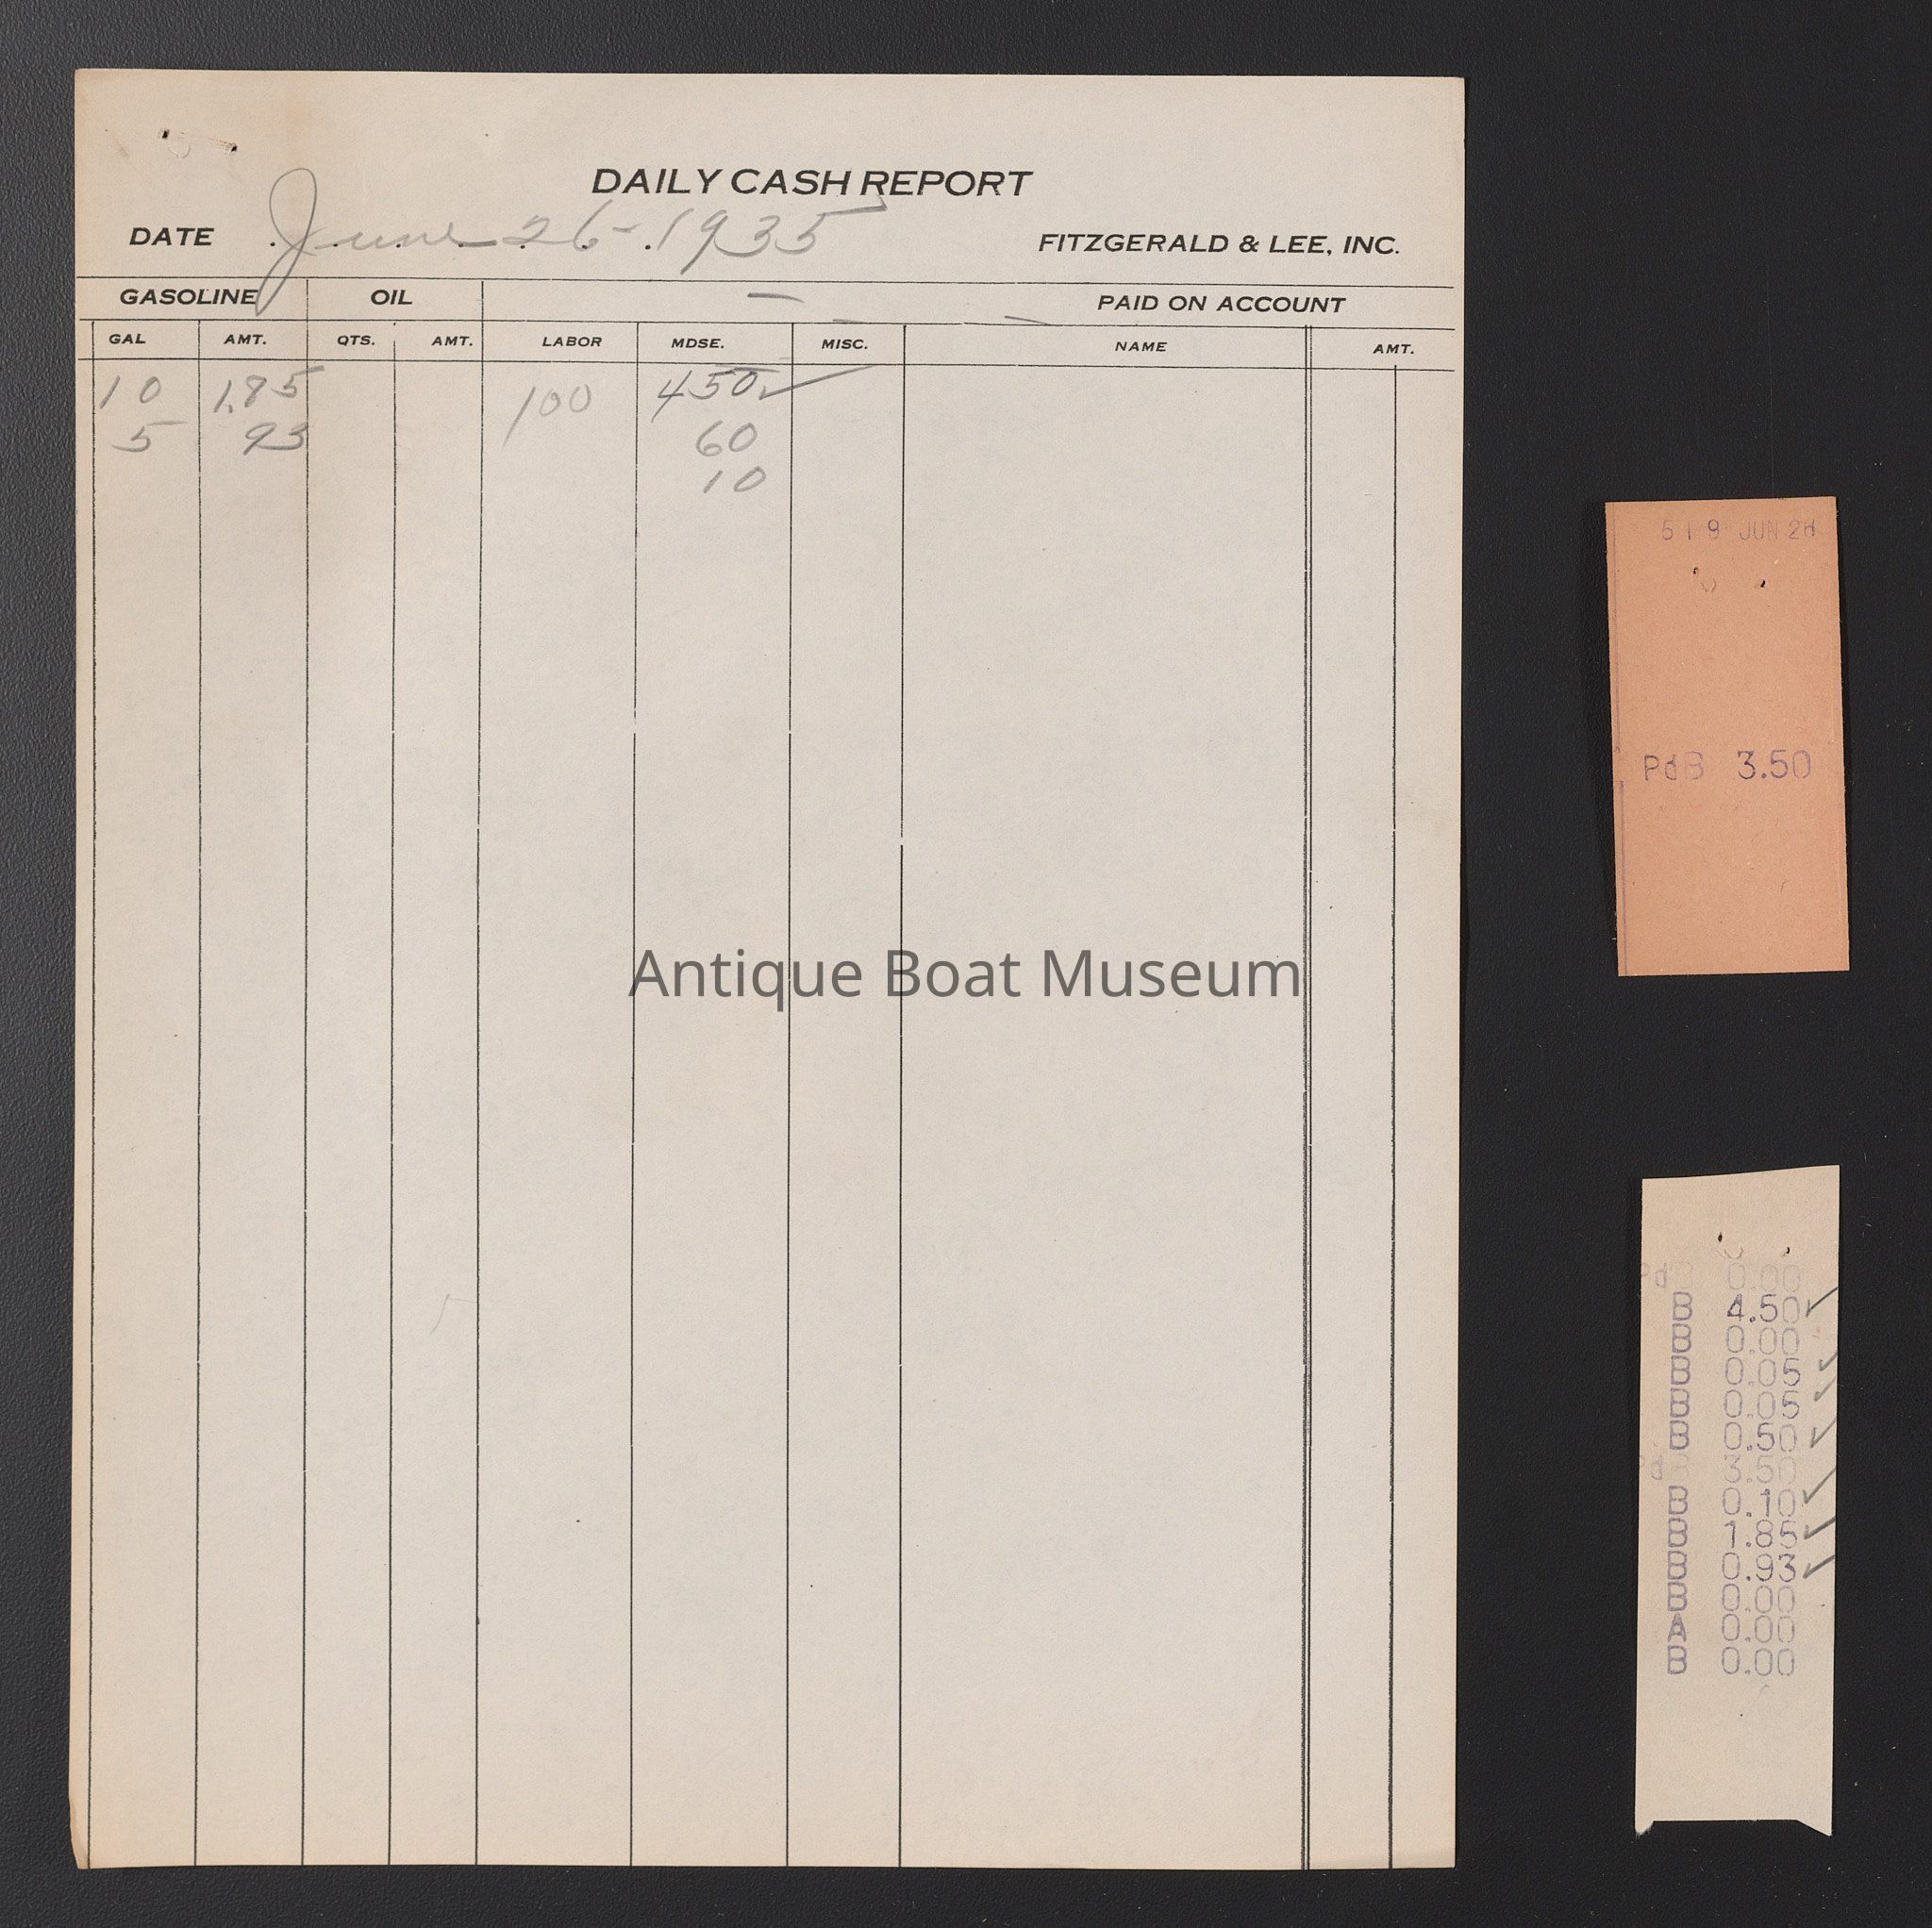 DAILY CASH REPORT
DATE June 26-1935 FITZGERALD & LEE, INC.
GASOLINE OIL PAID ON ACCOUNT
GAL AMT. QTS. AMT. LABOR MDSE. MISC. NAME AMT.
10 1.85 100 450✓
5 93 60
10
519 JUN 26
PdB 3.50
Antique Boat Museum
Pd 0.00
B 4.50✓
B 0.00
B 0.05✓
B 0.05✓
B 0.50✓
Pd 3.50
B 0.10✓
B 1.85✓
B 0.93✓
B 0.00
A 0.00
B 0.00